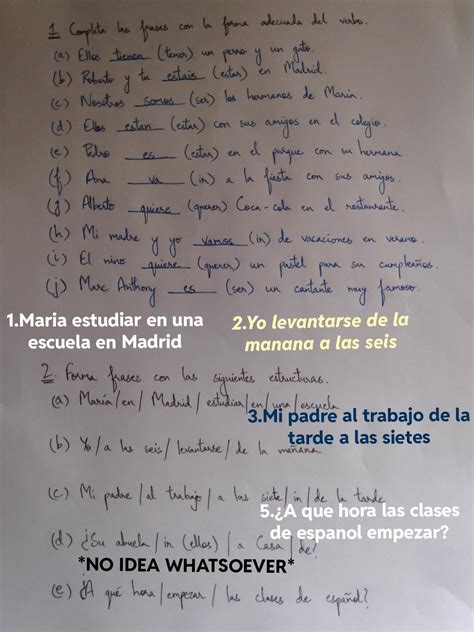 1. Completa las frases con la forma adecuada del verbo.
(a) Ellos tienen (tener) un perro y un gato.
(b) Roberto y tu estais (estar) en Madrid.
(c) Nosotros somos (ser) los hermanos de María.
(d) Ellos estan (estar) con sus amigos en el colegio.
(e) Pedro es (estar) en el parque con su hermana.
(f) Ana va (ir) a la fiesta con sus amigos.
(g) Alberto quiere (querer) Coca-cola en el restaurante.
(h) Mi madre y yo vamos (ir) de vacaciones en verano.
(i) El nino quiere (querer) un pastel para su cumpleaños.
(j) Marc Anthony es (ser) un cantante muy famoso.
1.Maria estudiar en una
escuela en Madrid
2.Yo levantarse de la
manana a las seis
2. Forma frases con las siguientes estructuras.
(a) María/en/Madrid/estudiar/en/una/escuela
3.Mi padre al trabajo de la
tarde a las sietes
(b) Yo/a las seis/levantarse/de la mañana
(c) Mi padre/al trabajo/a las siete/ir/de la tarde
5.¿A que hora las clases
de espanol empezar?
(d) ¿Su abuela/ir (ellos)/a casa/de?
*NO IDEA WHATSOEVER*
(e) ¿A qué hora/empezar/las clases de español?